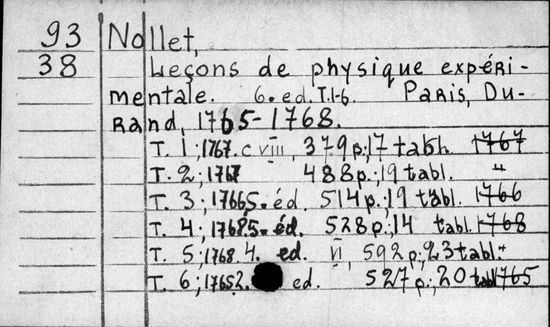 93 Nollet,
38 Leçons de physique expéri-
mentale. 6. ed. T.1-6. Paris, Du-
rand, 1765-1768.
T. 1; 1767. c VIII, 379 p.; 17 tabl. 1767
T. 2; 1767 488 p.; 19 tabl. "
T. 3; 1766 5. éd. 514 p.; 19 tabl. 1766
T. 4; 1768 5. éd. 528 p.; 14 tabl. 1768
T. 5; 1768. 4. ed. VI, 592 p.; 23 tabl. "
T. 6; 1765 2. ed. 527 p.; 20 tabl 1765